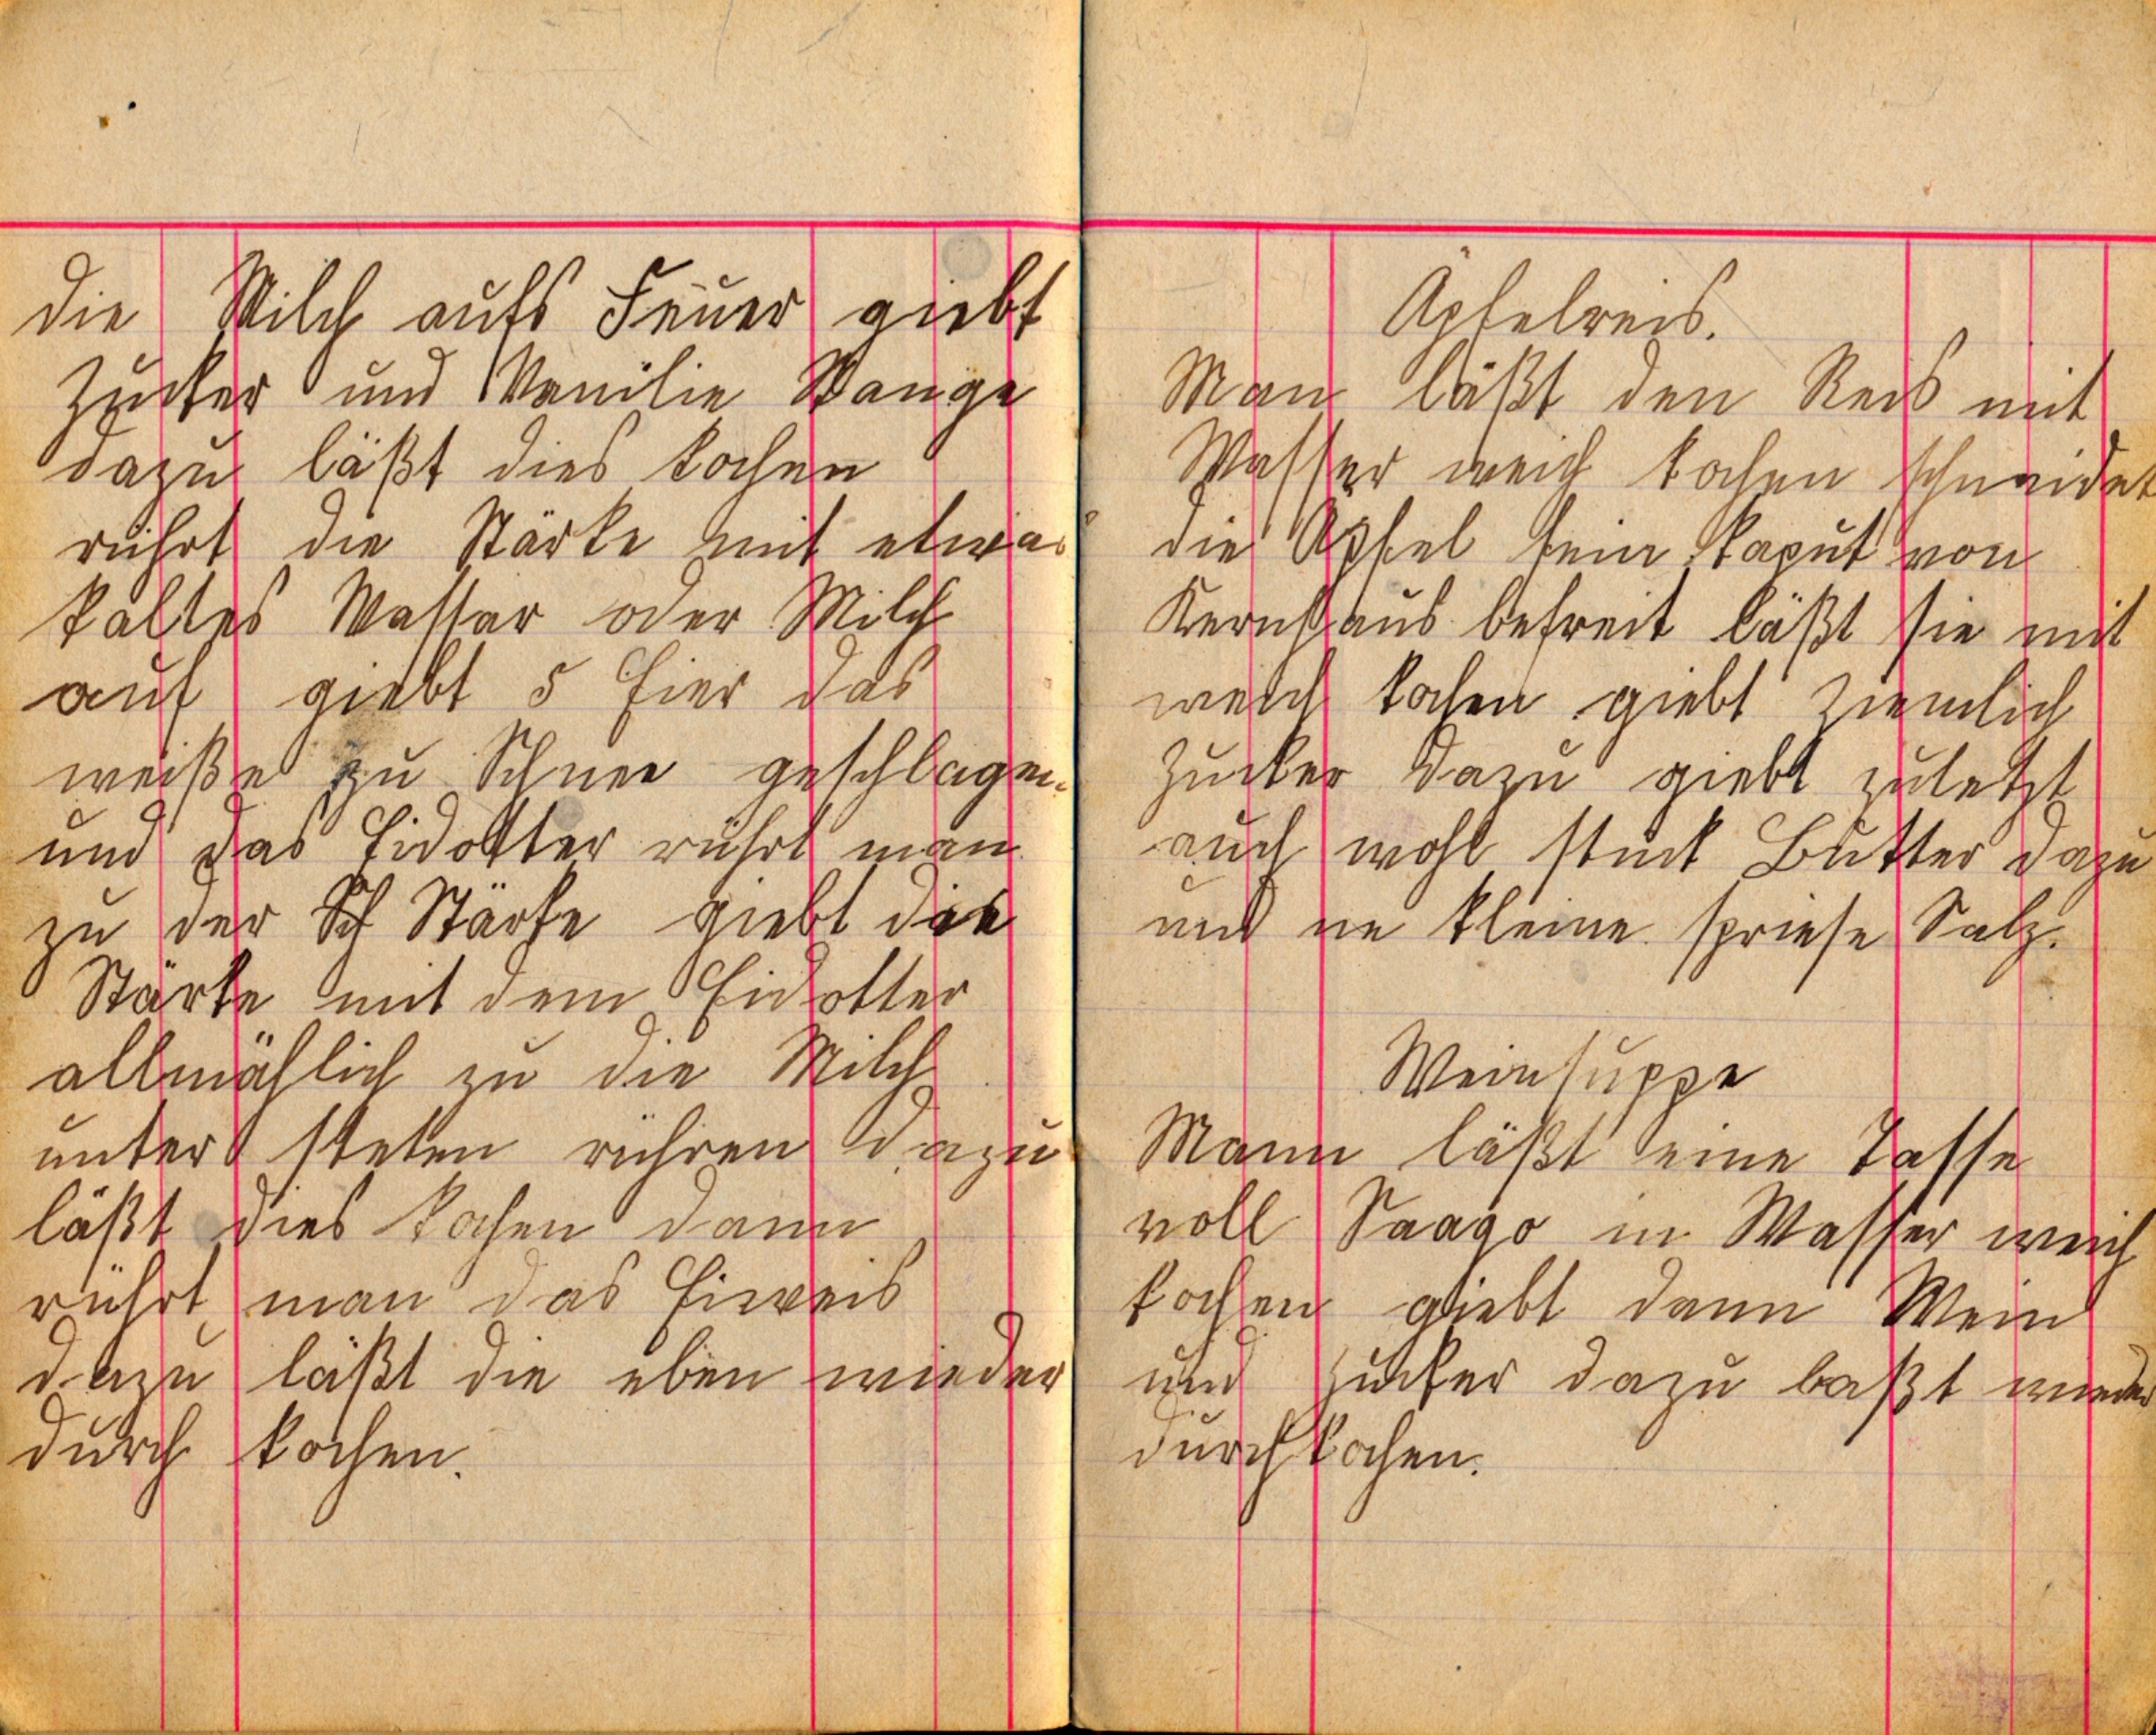 die Milch aufs Feuer giebt
Zucker und Vanilie Stange
dazu läßt dies kochen
rührt die Stärke mit etwas
kaltes Wasser oder Milch
auf giebt 5 Eier das
weiße zu Schnee geschlagen
und das Eidotter rührt man
zu der Sch Stärke giebt die
Stärke mit dem Eidotter
allmählich zu die Milch
unter steten rühren dazu
läßt dies kochen dann
rührt man das Eiweis
dazu läßt die eben wieder
durch kochen.
Äpfelreis.
Man läßt den Reis mit
Wasser weich kochen schneidet
die Äpfel fein kaput von
Kernhaus befreit läßt sie mit
weich kochen giebt ziemlich
Zucker dazu giebt zuletzt
auch wohl stück Butter dazu
und ne kleine spriese Salz.
Weinsuppe
Mann läßt eine Tasse
voll Saago in Wasser weich
kochen giebt dann Wein
und Zucker dazu laßt wieder
durchkochen.